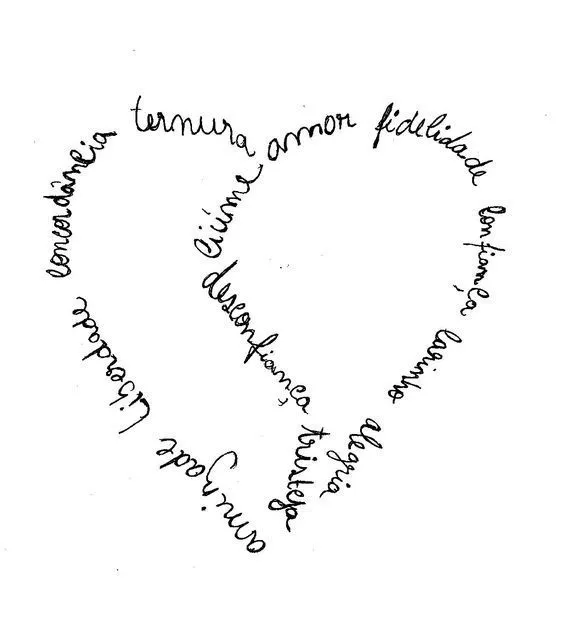 ternura
amor
fidelidade
confiança
carinho
alegria
tristeza
amizade
liberdade
concordância
ciúme
desconfiança